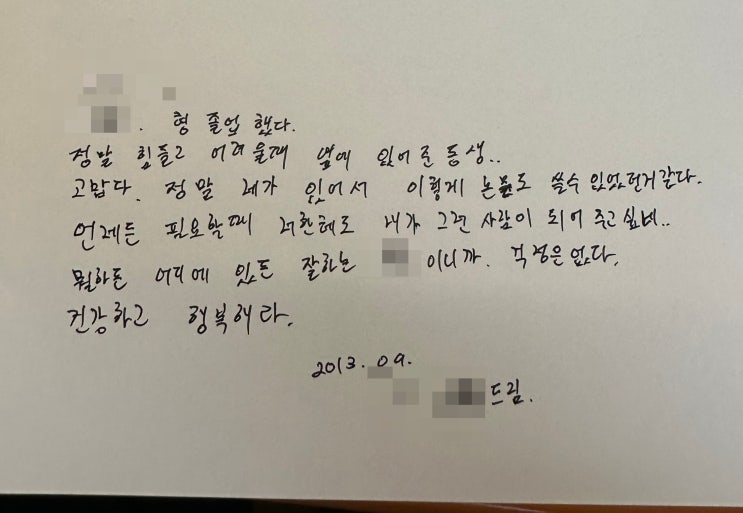 . 형 졸업 했다.
정말 힘들고 어려울때 옆에 있어준 동생..
고맙다. 정말 네가 있어서 이렇게 논문도 쓸수 있었던거 같다.
언제든 필요할때 너한테도 내가 그런 사람이 되어 주고 싶네..
뭘하든 어디에 있든 잘하는 이니까. 걱정은 없다.
건강하고 행복해라.
2013. 09.
드림.